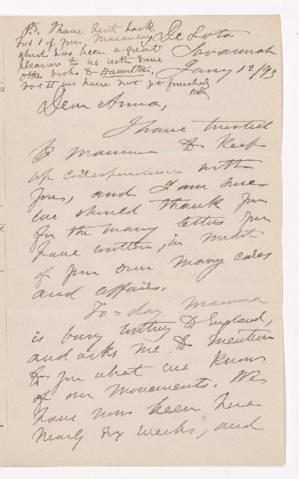 P.S. I have sent back
Vol 1 of your Macaulay
which has been a great
pleasure to us with some
other books to Hamilton,
Vol II we have not yet finished
De Soto
Savannah
Jany 12/93
Dear Anna,
I have trusted
to Mamma to keep
up correspondence with
you, and I am sure
we should thank you
for the many letters you
have written, in midst
of your own many cares
and affairs.
To-day Mamma
is busy writing to England,
and asks me to mention
to you what we know
of our movements. We
have now been here
nearly six weeks, and